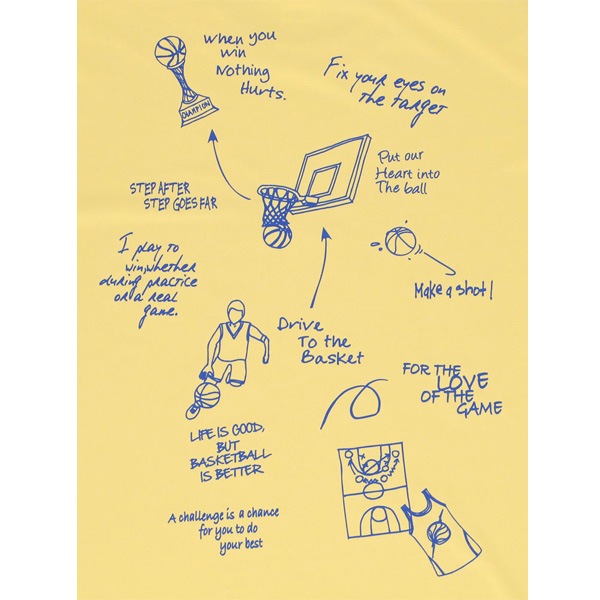 When you
win
Nothing
Hurts.
Fix your eyes on
the target
CHAMPION
Put our
Heart into
The ball
STEP AFTER
STEP GOES FAR
I play to
win,whether
during practice
or a real
game.
Make a shot!
Drive
To the
Basket
FOR THE
LOVE
OF THE
GAME
LIFE IS GOOD,
BUT
BASKETBALL
IS BETTER
A challenge is a chance
for you to do
your best